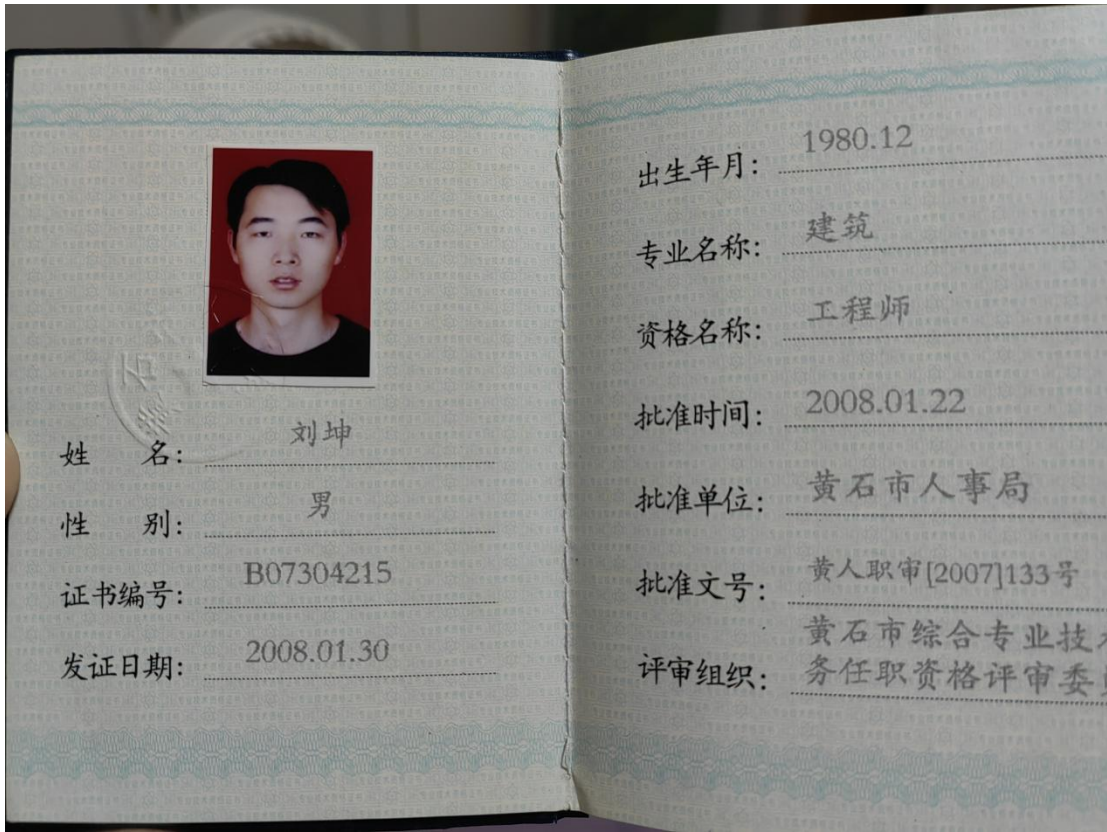 姓 名: 刘坤
性 别: 男
证书编号: B07304215
发证日期: 2008.01.30
出生年月: 1980.12
专业名称: 建筑
资格名称: 工程师
批准时间: 2008.01.22
批准单位: 黄石市人事局
批准文号: 黄人职审[2007]133号
评审组织: 黄石市综合专业技
务任职资格评审委